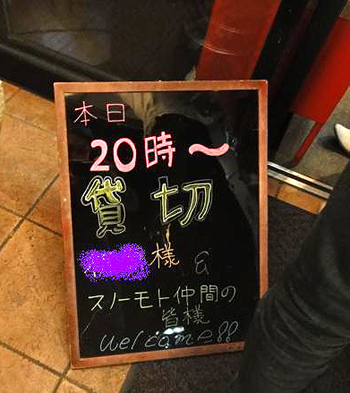 本日
20時〜
貸切
様 &
スノーモト仲間の
皆様
Welcome!!